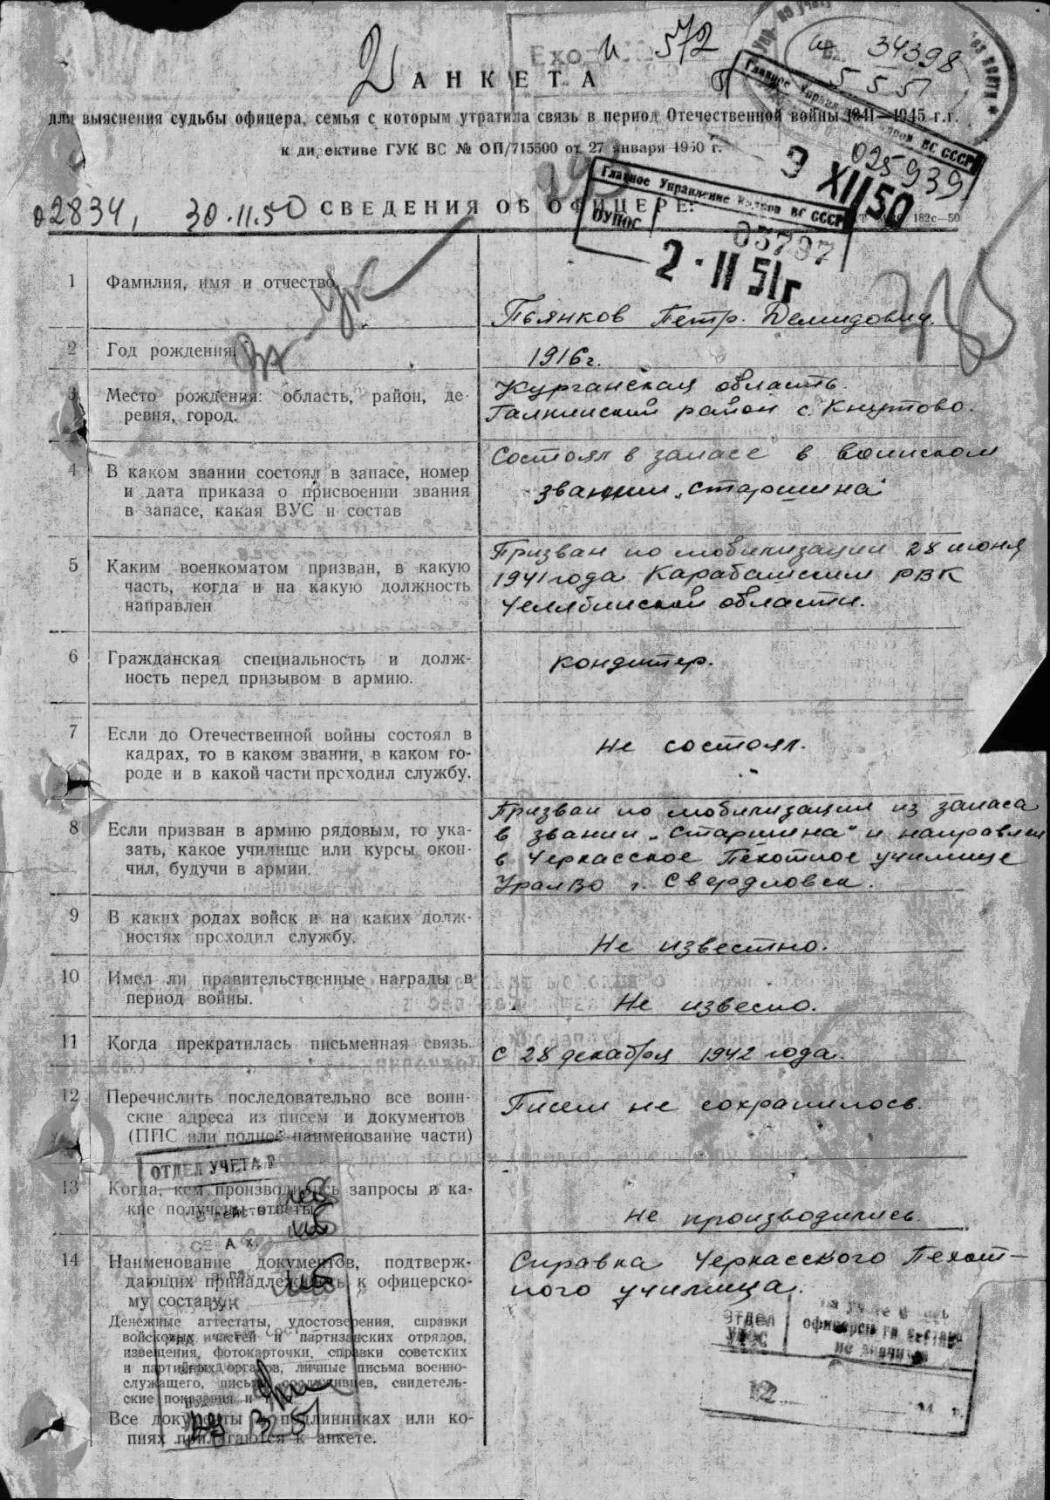 вх. 34398
5 5 51
Ехо
и 572
АНКЕТА
для выяснения судьбы офицера, семья с которым утратила связь в период Отечественной войны 1941—1945 г.г.
к директиве ГУК ВС № ОП/715500 от 27 января 1950 г.
Главное Управление Кадров ВС СССР
025939
9 XII 50
Главное Управление Кадров ВС СССР
ОУПОС
03797
2·II 51г
02834, 30.11.50
СВЕДЕНИЯ ОБ ОФИЦЕРЕ:
182с—50
1 Фамилия, имя и отчество
Пьянков Петр. Демидович.
2 Год рождения
1916г.
3 Место рождения: область, район, де-
ревня, город.
Курганская область.
Галкинский район с.
4 В каком звании состоял в запасе, номер
и дата приказа о присвоении звания
в запасе, какая ВУС и состав
Состоял в запасе в воинском
звании „старшина"
5 Каким военкоматом призван, в какую
часть, когда и на какую должность
направлен
Призван по мобилизации 28 июня
1941 года Карабашским РВК
Челябинской области.
6 Гражданская специальность и долж-
ность перед призывом в армию.
кондитер.
7 Если до Отечественной войны состоял в
кадрах, то в каком звании, в каком го-
роде и в какой части проходил службу.
Не состоял.
8 Если призван в армию рядовым, то ука-
зать, какое училище или курсы окон-
чил, будучи в армии.
Призван по мобилизации из запаса
в звании „старшина" и направлен
в Черкасское Пехотное училище
УралВО г. Свердловск.
9 В каких родах войск и на каких долж-
ностях проходил службу.
Не известно.
10 Имел ли правительственные награды в
период войны.
Не извесно.
11 Когда прекратилась письменная связь.
С 28 декабря 1942 года.
12 Перечислить последовательно все воин-
ские адреса из писем и документов
(ППС или полное наименование части)
Писем не сохранилось.
ОТДЕЛ УЧЕТА
13 Когда, кем производились запросы и ка-
кие получены ответы
Не производились.
14 Наименование документов, подтверж-
дающих принадлежность к офицерско-
му составу.
Справка Черкасского Пехот-
ного училища.
Денежные аттестаты, удостоверения, справки
войсковых частей и партизанских отрядов,
извещения, фотокарточки, справки советских
и партийных органов, личные письма военно-
служащего, письма сослуживцев, свидетель-
ские показания и
Все документы в подлинниках или ко-
пиях прилагаются к анкете.
Отдел
УПОС
на учете в
офицерского состава
не значится
12